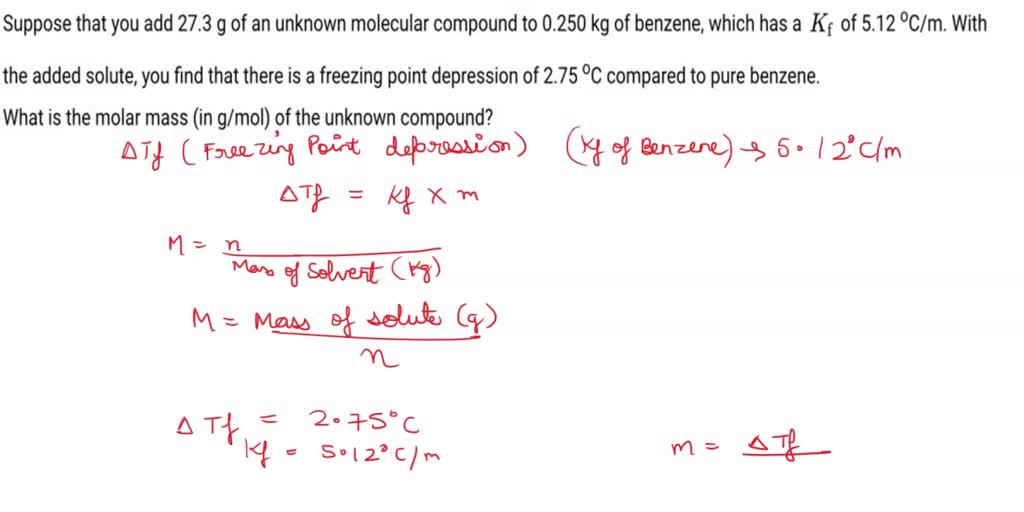 Suppose that you add 27.3 g of an unknown molecular compound to 0.250 kg of benzene, which has a Kf of 5.12 ⁰C/m. With
the added solute, you find that there is a freezing point depression of 2.75 ⁰C compared to pure benzene.
What is the molar mass (in g/mol) of the unknown compound?
ΔTf (Freezing Point depression) (Kf of Benzene) → 5.12°C/m
ΔTf = Kf × m
M = n
Mass of Solvent (Kg)
M = Mass of solute (g)
n
ΔTf = 2.75°C
Kf = 5.12°C/m
m = ΔTf